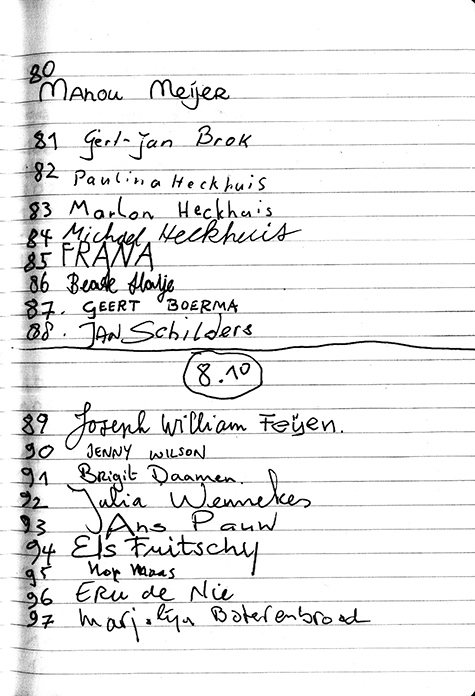 80
Manou Meijer
81 Gert-Jan Brok
82 Paulina Heckhuis
83 Marlon Heckhuis
84 Michael Heckhuis
85 FRANA
86 Beate
87. GEERT BOERMA
88. JAN Schilders
8.10
89 Joseph William Feijen.
90 JENNY WILSON
91 Brigit Daamen.
92 Julia Wennekes
93 Ans Pauw
94 Els Fritschy
95 Maas
96 Eru de Nie
97 Marjolijn Boterenbrood